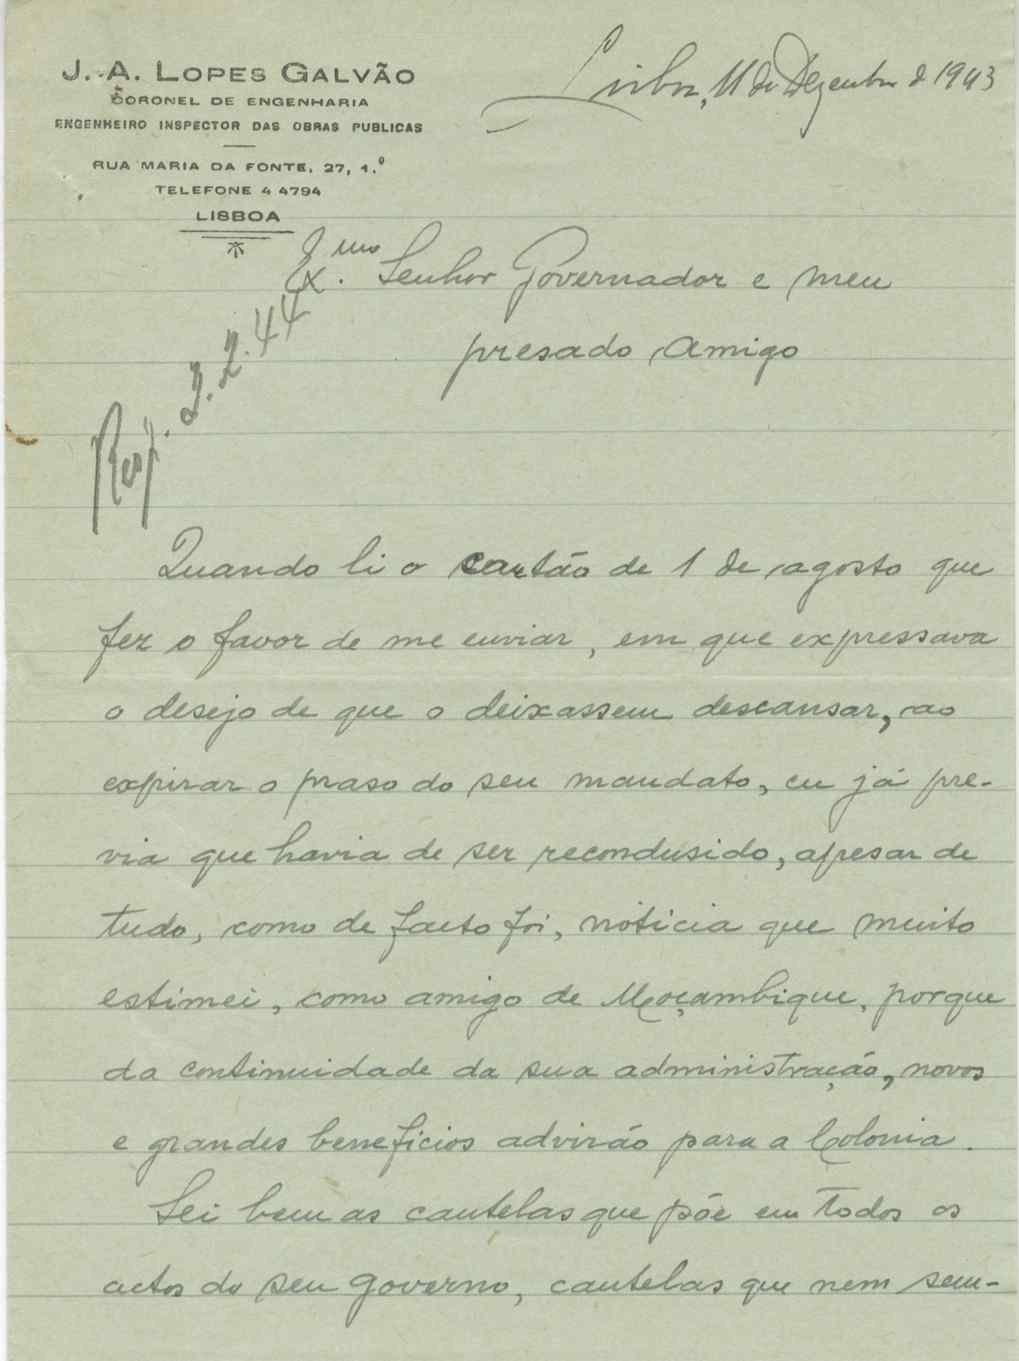 J. A. LOPES GALVÃO
CORONEL DE ENGENHARIA
ENGENHEIRO INSPECTOR DAS OBRAS PUBLICAS
RUA MARIA DA FONTE, 27, 1.º
TELEFONE 4 4794
LISBOA
Lisboa, 11 de Dezembro de 1943
Ex.mo Senhor Governador e meu
presado Amigo
Resp. 2.2.44
Quando li o cartão de 1 de agosto que
fez o favor de me enviar, em que expressava
o desejo de que o deixassem descansar, ao
expirar o praso do seu mandato, eu já pre-
via que havia de ser recondusido, apesar de
tudo, como de facto foi, nóticia que muito
estimei, como amigo de Moçambique, porque
da continuidade da sua administração, novos
e grandes beneficios advirão para a Colonia.
Sei bem as cautelas que põe em todos os
actos do seu governo, cautelas que nem sem-